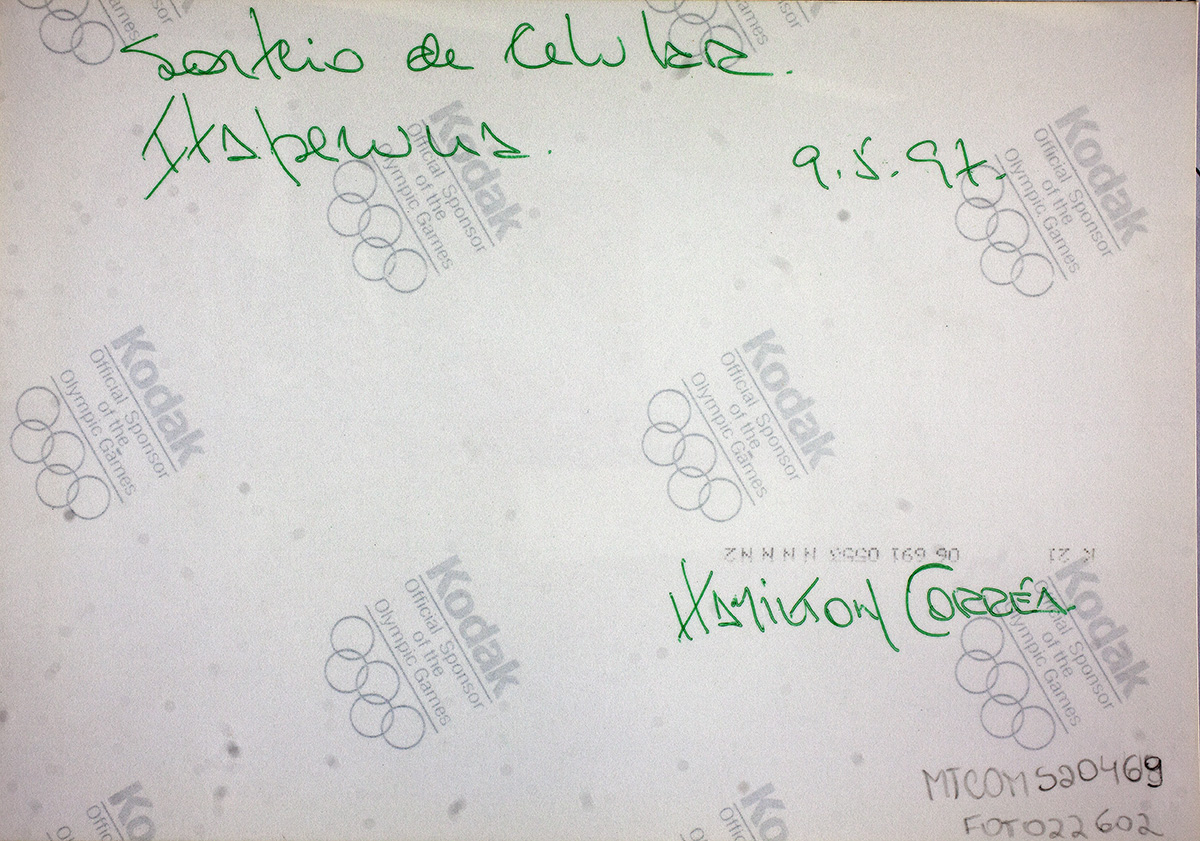 Sorteio de Celular.
Itaperuna.
9.5.97.
Kodak
Official Sponsor
of the
Olympic Games
Kodak
Official Sponsor
of the
Olympic Games
Kodak
Official Sponsor
of the
Olympic Games
Kodak
Official Sponsor
of the
Olympic Games
HAMILTON CORRÉA
Kodak
Official Sponsor
of the
Olympic Games
Kodak
Official Sponsor
of the
Olympic Games
MTCOM520469
FOTO22602